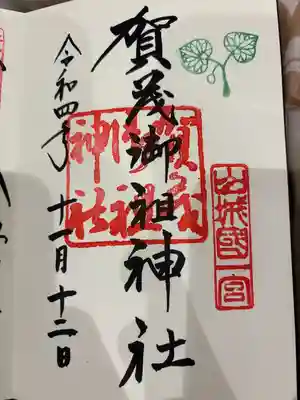 山城國一宮
賀茂御祖神社
賀茂
御祖
神社
令和四年 十一月 十二日